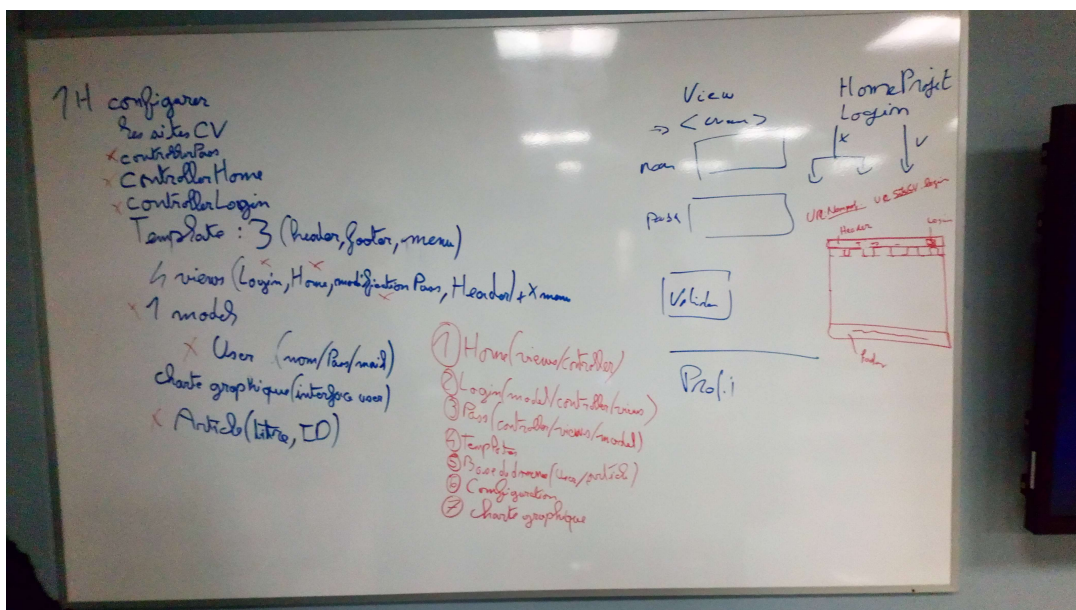 1H configurer
les sites CV
x controllerPass
x ControllerHome
x ControllerLogin
Template : 3 (header, footer, menu)
4 views (Login, Home, modification Pass, Header) + X menu
x 1 model
x User (nom/Pass/mail)
charte graphique (interface user)
x Article (titre, ID)
① Home (views/controller)
② Login (model/controller/views)
③ Pass (controller/views/model)
④ Templates
⑤ Base de donnée (User/article)
⑥ Configuration
⑦ charte graphique
View
=>
nom
pass
Valider
Profil
HomeProjet
Login
x v
Header
Login
footer